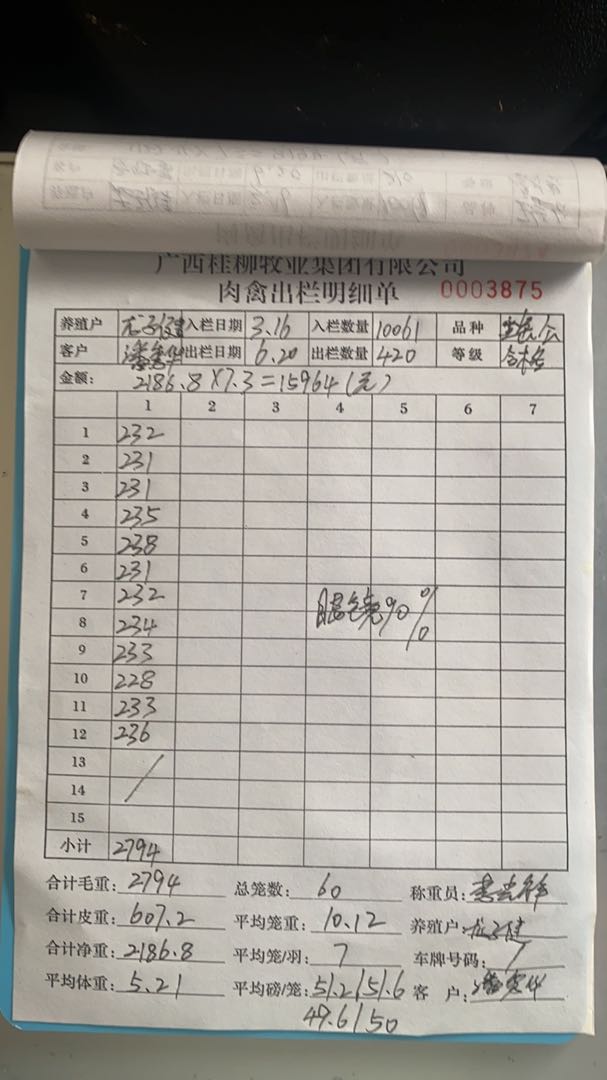 广西桂柳牧业集团有限公司
肉禽出栏明细单 0003875
养殖户 入栏日期 3.16 入栏数量 10061 品种
客户 出栏日期 6.20 出栏数量 420 等级 合格
金额: 2186.8×7.3=15964(元)
1 2 3 4 5 6 7
1 232
2 231
3 231
4 235
5 238
6 231
7 232 眼亮90%
8 234
9 233
10 228
11 233
12 236
13
14
15
小计 2794
合计毛重: 2794 总笼数: 60 称重员:
合计皮重: 607.2 平均笼重: 10.12 养殖户:
合计净重: 2186.8 平均笼/羽: 7 车牌号码: /
平均体重: 5.21 平均磅/笼: 51.2/51.6 客 户:
49.6/50